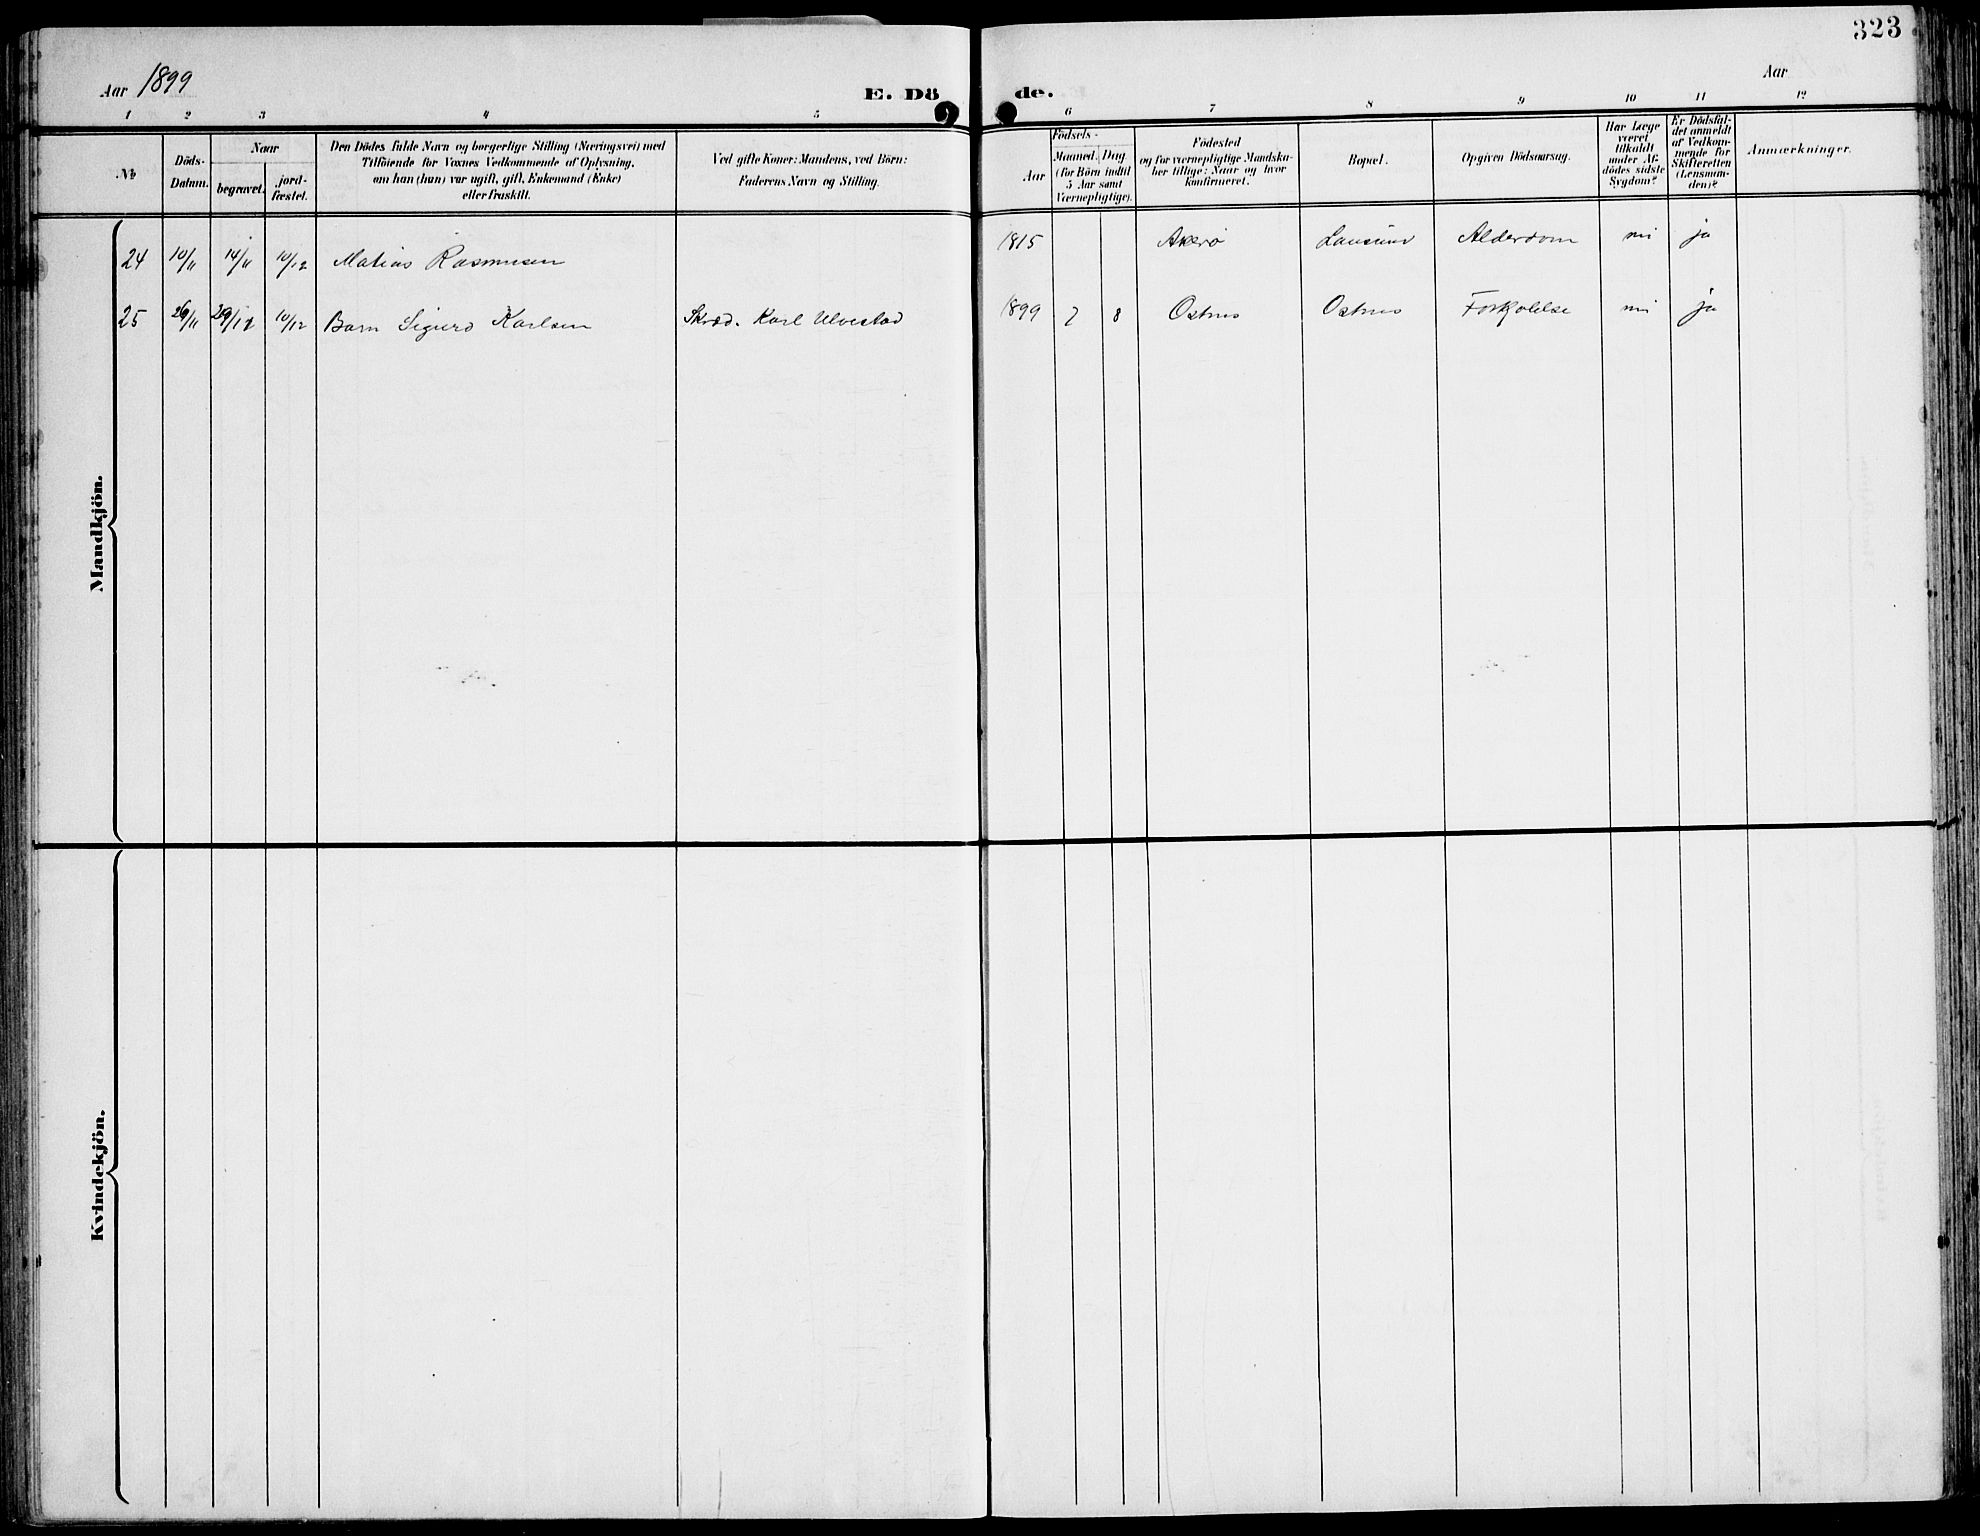 323
Aar 1899
E. Döde.
Aar
1 2 3 4 5 6 7 8 9 10 11 12
№
Döds-
Datum.
Naar
begravet.
jord-
fæstet.
Den Dödes fulde Navn og borgerlige Stilling (Næringsvei) med
Tilföiende for Voxnes Vedkommende af Oplysning,
om han (hun) var ugift, gift, Enkemand (Enke)
eller fraskilt.
Ved gifte Koner: Mandens, ved Börn:
Faderens Navn og Stilling.
Födsels-
Aar
Maaned. Dag
(for Börn indtil
5 Aar samt
Værnepligtige).
Födested
og for værnepligtige Mandska-
ber tillige: Naar og hvor
konfirmeret.
Bopæl.
Opgiven Dödsaarsag.
Har Læge
været
tilkaldt
under Af-
dödes sidste
Sygdom?
Er Dödsfal-
det anmeldt
af Vedkom-
mende for
Skifteretten
(Lensman-
den)?
Anmærkninger.
Mandkjön.
24 10/11 14/11 10/12 Matias Rasmusen 1815 Akerö Alderdom nei ja
25 26/11 10/12 Barn Sigurd Karlsen Skræd. Karl Ulvestad 1899 7 8 Ostnes Ostnes Forkjølelse nei ja
Kvindekjön.